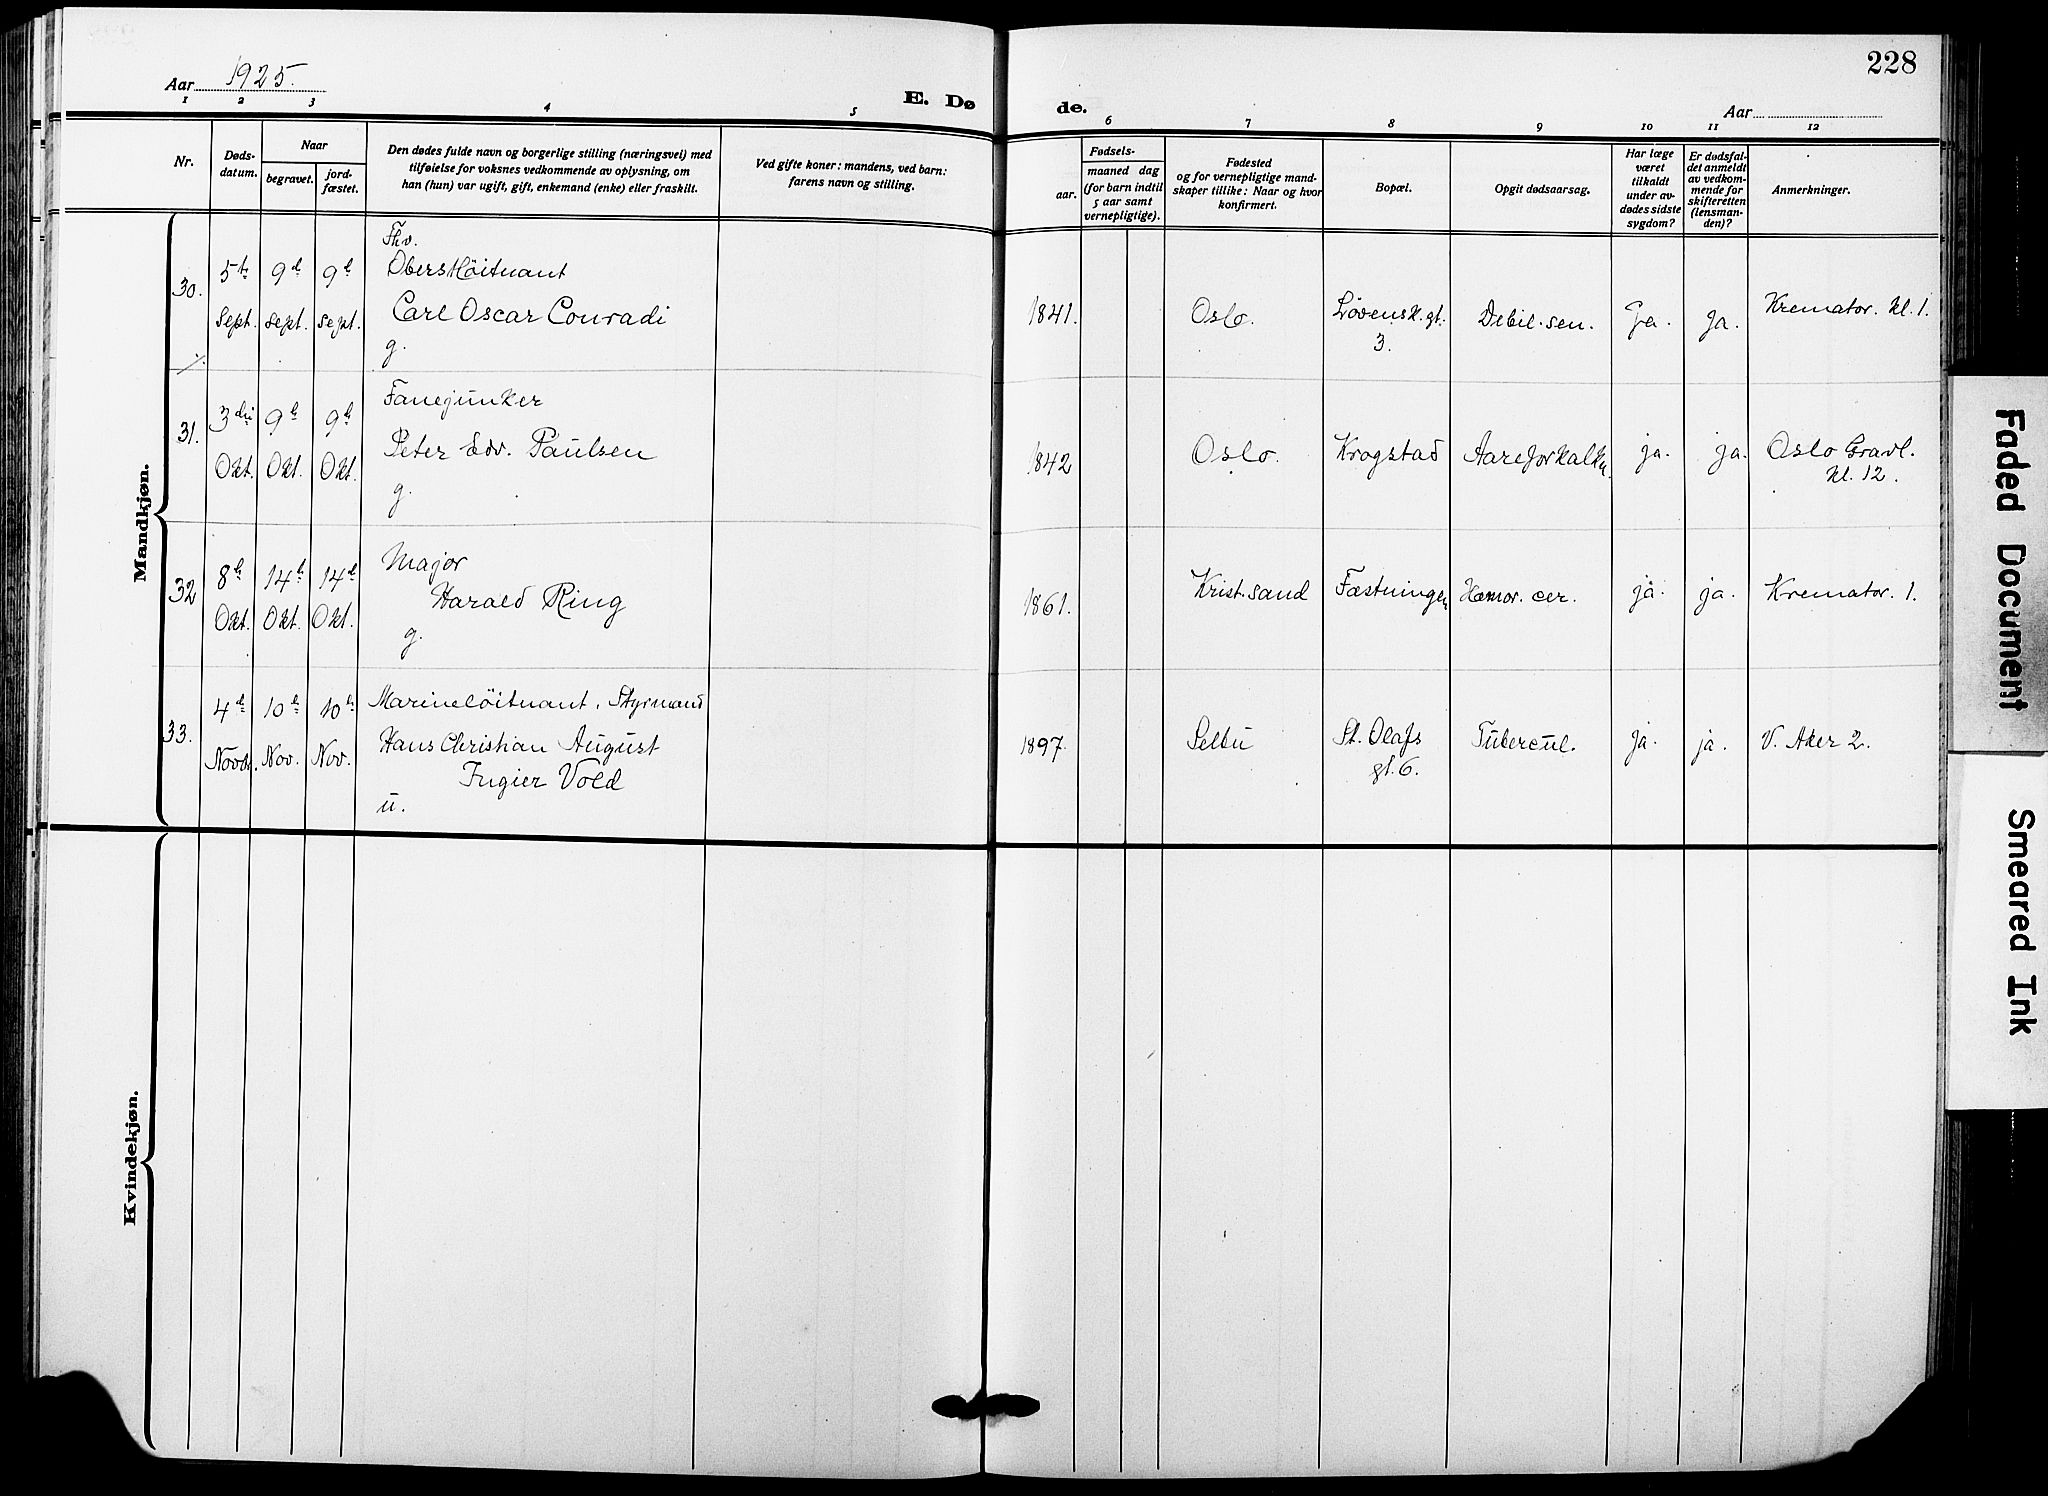 Aar 1925.
E. Dø
de.
228
Aar
1 2 3 4 5
6 7 8 9 10 11 12
Nr.
Døds-
datum.
Naar
begravet.
jord-
fæstet.
Den dødes fulde navn og borgerlige stilling (næringsvei) med
tilføielse for voksnes vedkommende av oplysning, om
han (hun) var ugift, gift, enkemand (enke) eller fraskilt.
Ved gifte koner: mandens, ved barn:
farens navn og stilling.
Fødsels-
aar.
maaned dag
(for barn indtil
5 aar samt
vernepligtige).
Fødested
og for vernepligtige mand-
skaper tillike: Naar og hvor
konfirmert.
Bopæl.
Opgit dødsaarsag.
Har læge
været
tilkaldt
under av-
dødes sidste
sygdom?
Er dødsfal-
det anmeldt
av vedkom-
mende for
skifteretten
(lensman-
den)?
Anmerkninger.
Mandkjøn.
30.
5te
Sept.
9de
sept.
9de
sept.
Fhv.
Oberstløitnant
Carl Oscar Conradi
g.
1841.
Oslo.
Løvensk. gt.
3.
Debil. sen.
Ja.
Ja.
Kremator. kl. 1.
31.
3die
Okt.
9de
Okt.
9de
Okt.
Fanejunker
Peter Edv. Paulsen
g.
1842
Oslo.
Krogstad
Aareforkalkn.
ja.
ja.
Oslo Gravl.
kl. 12.
32
8de
Okt.
14de
Okt.
14de
Okt.
Major
Harald Ring
g.
1861.
Krist.sand
Fæstningen
Hæmor. cer.
ja.
ja.
Kremator. 1.
33.
4de
Novbr.
10de
Nov.
10de
Nov.
Marineløitnant, Styrmand
Hans Christian August
Fugier Vold
u.
1897.
Selbu
St. Olafs
gt. 6.
Tubercul.
ja.
ja.
V. Aker 2.
Kvindekjøn.
Faded Document
Smeared Ink